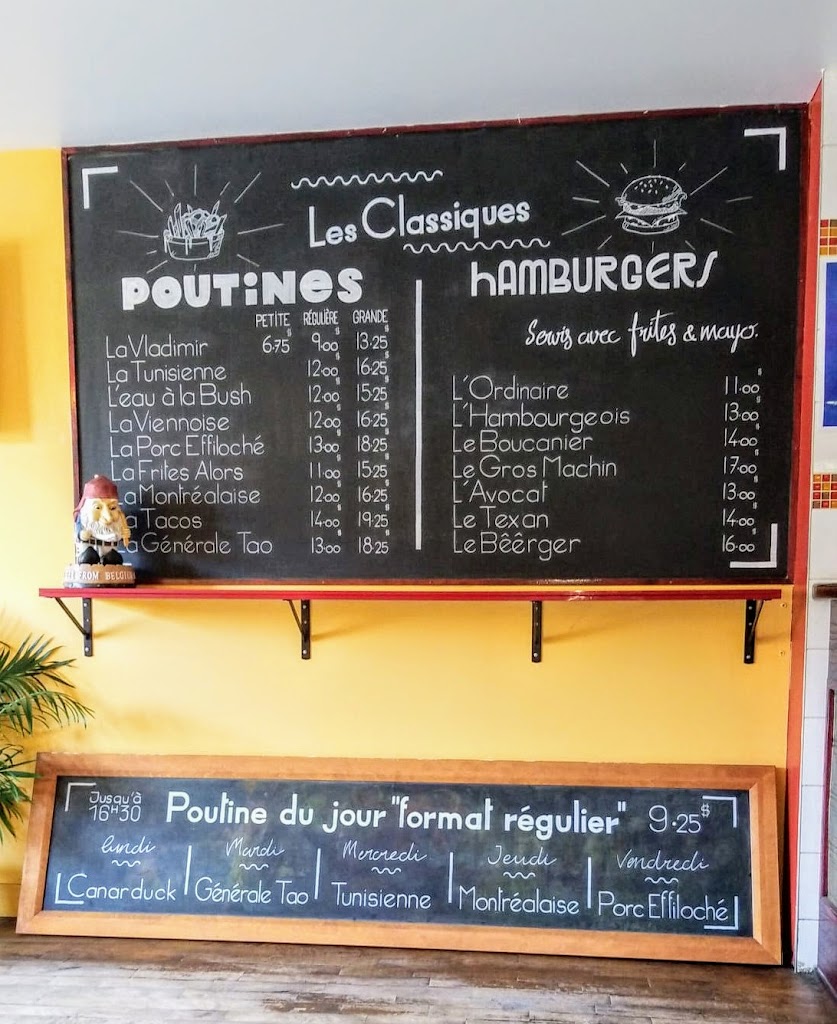 Les Classiques
POUTINES
PETITE RÉGULIÈRE GRANDE
La Vladimir 6.75$ 9.00$ 13.25$
La Tunisienne 12.00$ 16.25$
L'eau à la Bush 12.00$ 15.25$
La Viennoise 12.00$ 16.25$
La Porc Effiloché 13.00$ 18.25$
La Frites Alors 11.00$ 15.25$
La Montréalaise 12.00$ 16.25$
La Tacos 14.00$ 19.25$
La Générale Tao 13.00$ 18.25$
HAMBURGERS
Servis avec frites & mayo.
L'Ordinaire 11.00$
L'Hambourgeois 13.00$
Le Boucanier 14.00$
Le Gros Machin 17.00$
L'Avocat 13.00$
Le Texan 14.00$
Le Bêêrger 16.00$
FROM BELGIU
Jusqu'à
16H30
Poutine du jour "format régulier" 9.25$
Lundi Mardi Mercredi Jeudi Vendredi
Canarduck Générale Tao Tunisienne Montréalaise Porc Effiloché